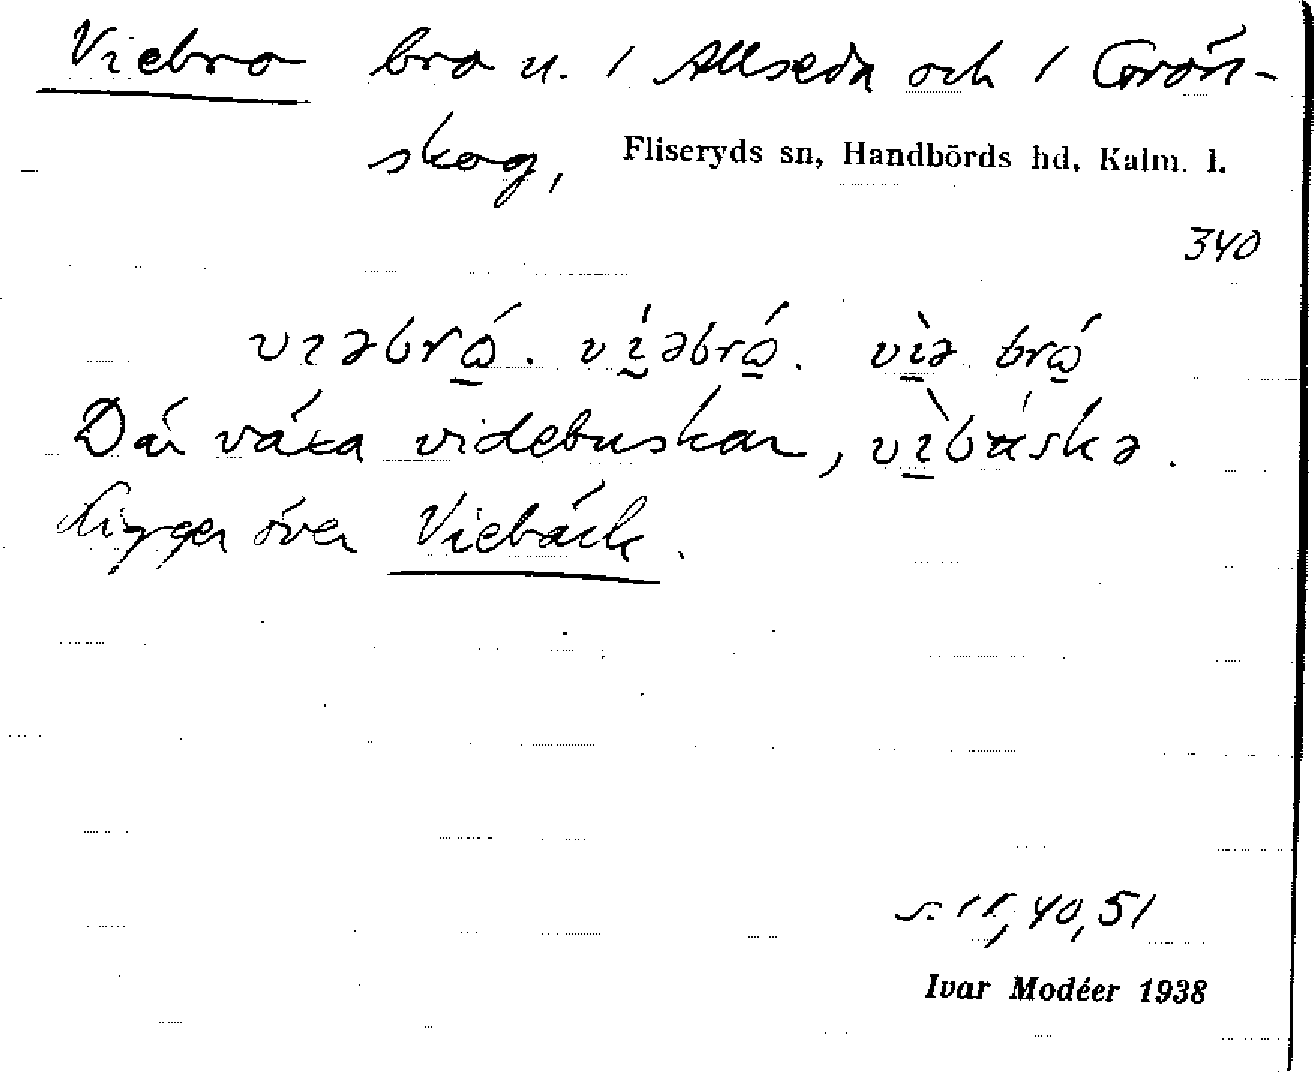 Viebro bro n. i Allseda och i Grön-
skog, Fliseryds sn, Handbörds hd, Kalm. l.
340
Där växa videbuskar,
Ligger över Viebäck.
s. 11, 40, 51
Ivar Modéer 1938